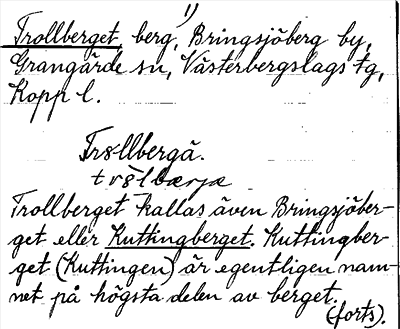 1)
Trollberget, berg, Bringsjöberg by,
Grangärde sn, Västerbergslags tg,
Kopp l.
Trs̊-llbergä.
Trollberget kallas även Bringsjöber-
get eller Kuttingberget. Kuttingber-
get (Kuttingen) är egentligen nam-
net på högsta delen av berget.
(forts).